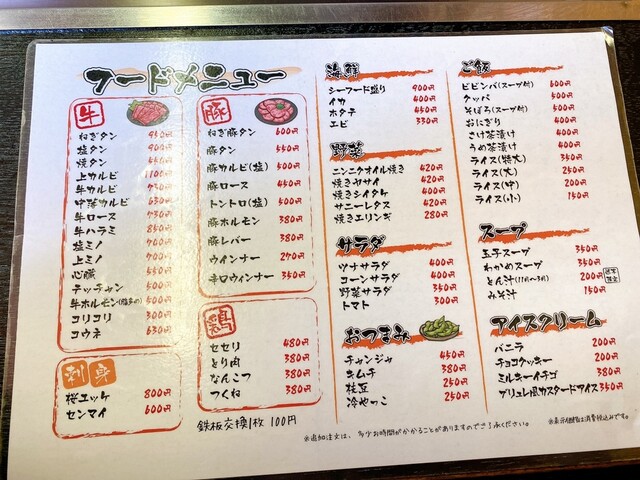 フードメニュー
牛
ねぎタン 950円
塩タン 900円
焼タン
上カルビ 1100円
牛カルビ 750円
中落カルビ 630円
牛ロース 730円
牛ハラミ 850円
塩ミノ 700円
上ミノ 700円
心臓 550円
テッチャン 500円
牛ホルモン
コリコリ 300円
コウネ 630円
刺身
桜ユッケ 800円
センマイ 600円
豚
ねぎ豚タン 600円
豚タン 550円
豚カルビ(塩) 500円
豚ロース 450円
トントロ(塩) 500円
豚ホルモン 380円
豚レバー 380円
ウインナー 270円
辛口ウィンナー 350円
鶏
セセリ 480円
とり肉 380円
なんこつ 380円
つくね 380円
鉄板交換1枚 100円
海鮮
シーフード盛り 900円
イカ 400円
ホタテ 450円
エビ 330円
野菜
ニンニクオイル焼き 420円
焼きヤサイ 420円
焼きシイタケ 400円
サニーレタス 420円
焼きエリンギ 280円
サラダ
ツナサラダ 400円
コーンサラダ 400円
野菜サラダ 350円
トマト 300円
おつまみ
チャンジャ 450円
キムチ 380円
枝豆 250円
冷やっこ 250円
ご飯
ビビンバ(スープ付) 600円
クッパ 500円
そぼろ(スープ付) 500円
おにぎり 400円
さけ茶漬け 400円
うめ茶漬け 400円
ライス(特大) 350円
ライス(大) 250円
ライス(中) 200円
ライス(小) 150円
スープ
玉子スープ 350円
わかめスープ 350円
とん汁(11月〜3月) 200円
みそ汁 150円
アイスクリーム
バニラ 200円
チョコクッキー 200円
ミルキーイチゴ 380円
ブリュレ風カスタードアイス 350円
※追加注文は、多少お時間がかかることがありますのでご了承ください。
※表示価格は消費税込みです。